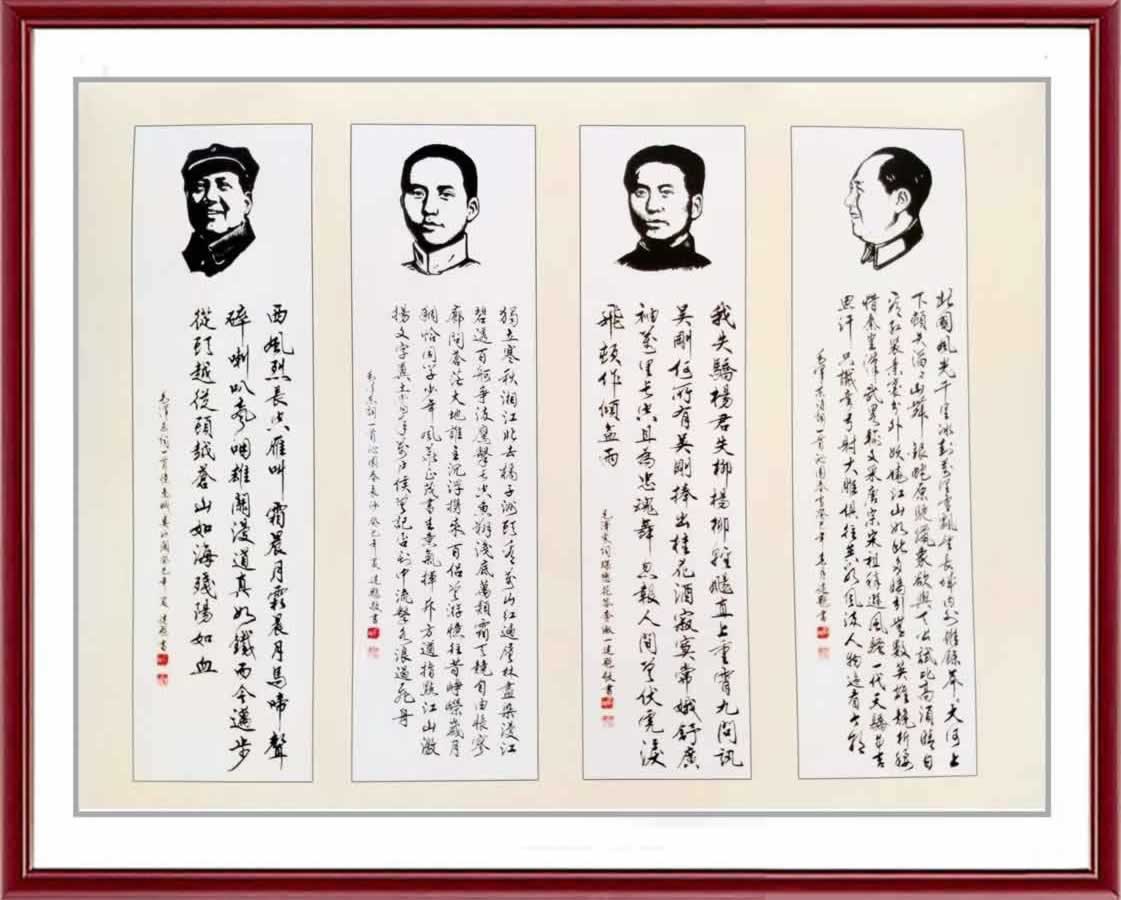 北國風光千里冰封萬里雪飄望長城內外惟餘莽莽大河上
下頓失滔滔山舞銀蛇原馳蠟象欲與天公試比高須晴日
看紅裝素裹分外妖嬈江山如此多嬌引無數英雄競折腰
惜秦皇漢武畧輸文采唐宗宋祖稍遜風騷一代天驕成吉
思汗只識彎弓射大雕俱往矣數風流人物還看今朝
毛澤東詞一首沁園春雪癸巳年夏月建題書
我失驕楊君失柳楊柳輕颺直上重霄九問訊
吳剛何所有吳剛捧出桂花酒寂寞常娥舒廣
袖萬里長空且為忠魂舞忽報人間曾伏虎淚
飛頓作傾盆雨
毛澤東詞蝶戀花答李淑一建題敬書
獨立寒秋湘江北去橘子洲頭看萬山紅遍層林盡染漫江
碧透百舸爭流鷹擊長空魚翔淺底萬類霜天競自由悵寥
廓問蒼茫大地誰主沉浮攜來百侶曾游憶往昔崢嶸歲月
稠恰同學少年風華正茂書生意氣揮斥方遒指點江山激
揚文字糞土當年萬戶侯曾記否到中流擊水浪遏飛舟
毛澤東詞一首沁園春長沙癸巳年夏建題敬書
西風烈長空雁叫霜晨月霜晨月馬啼聲
碎喇叭聲咽雄關漫道真如鐵而今邁步
從頭越從頭越蒼山如海殘陽如血
毛澤東詞一首憶秦娥婁山關癸巳年夏建題書